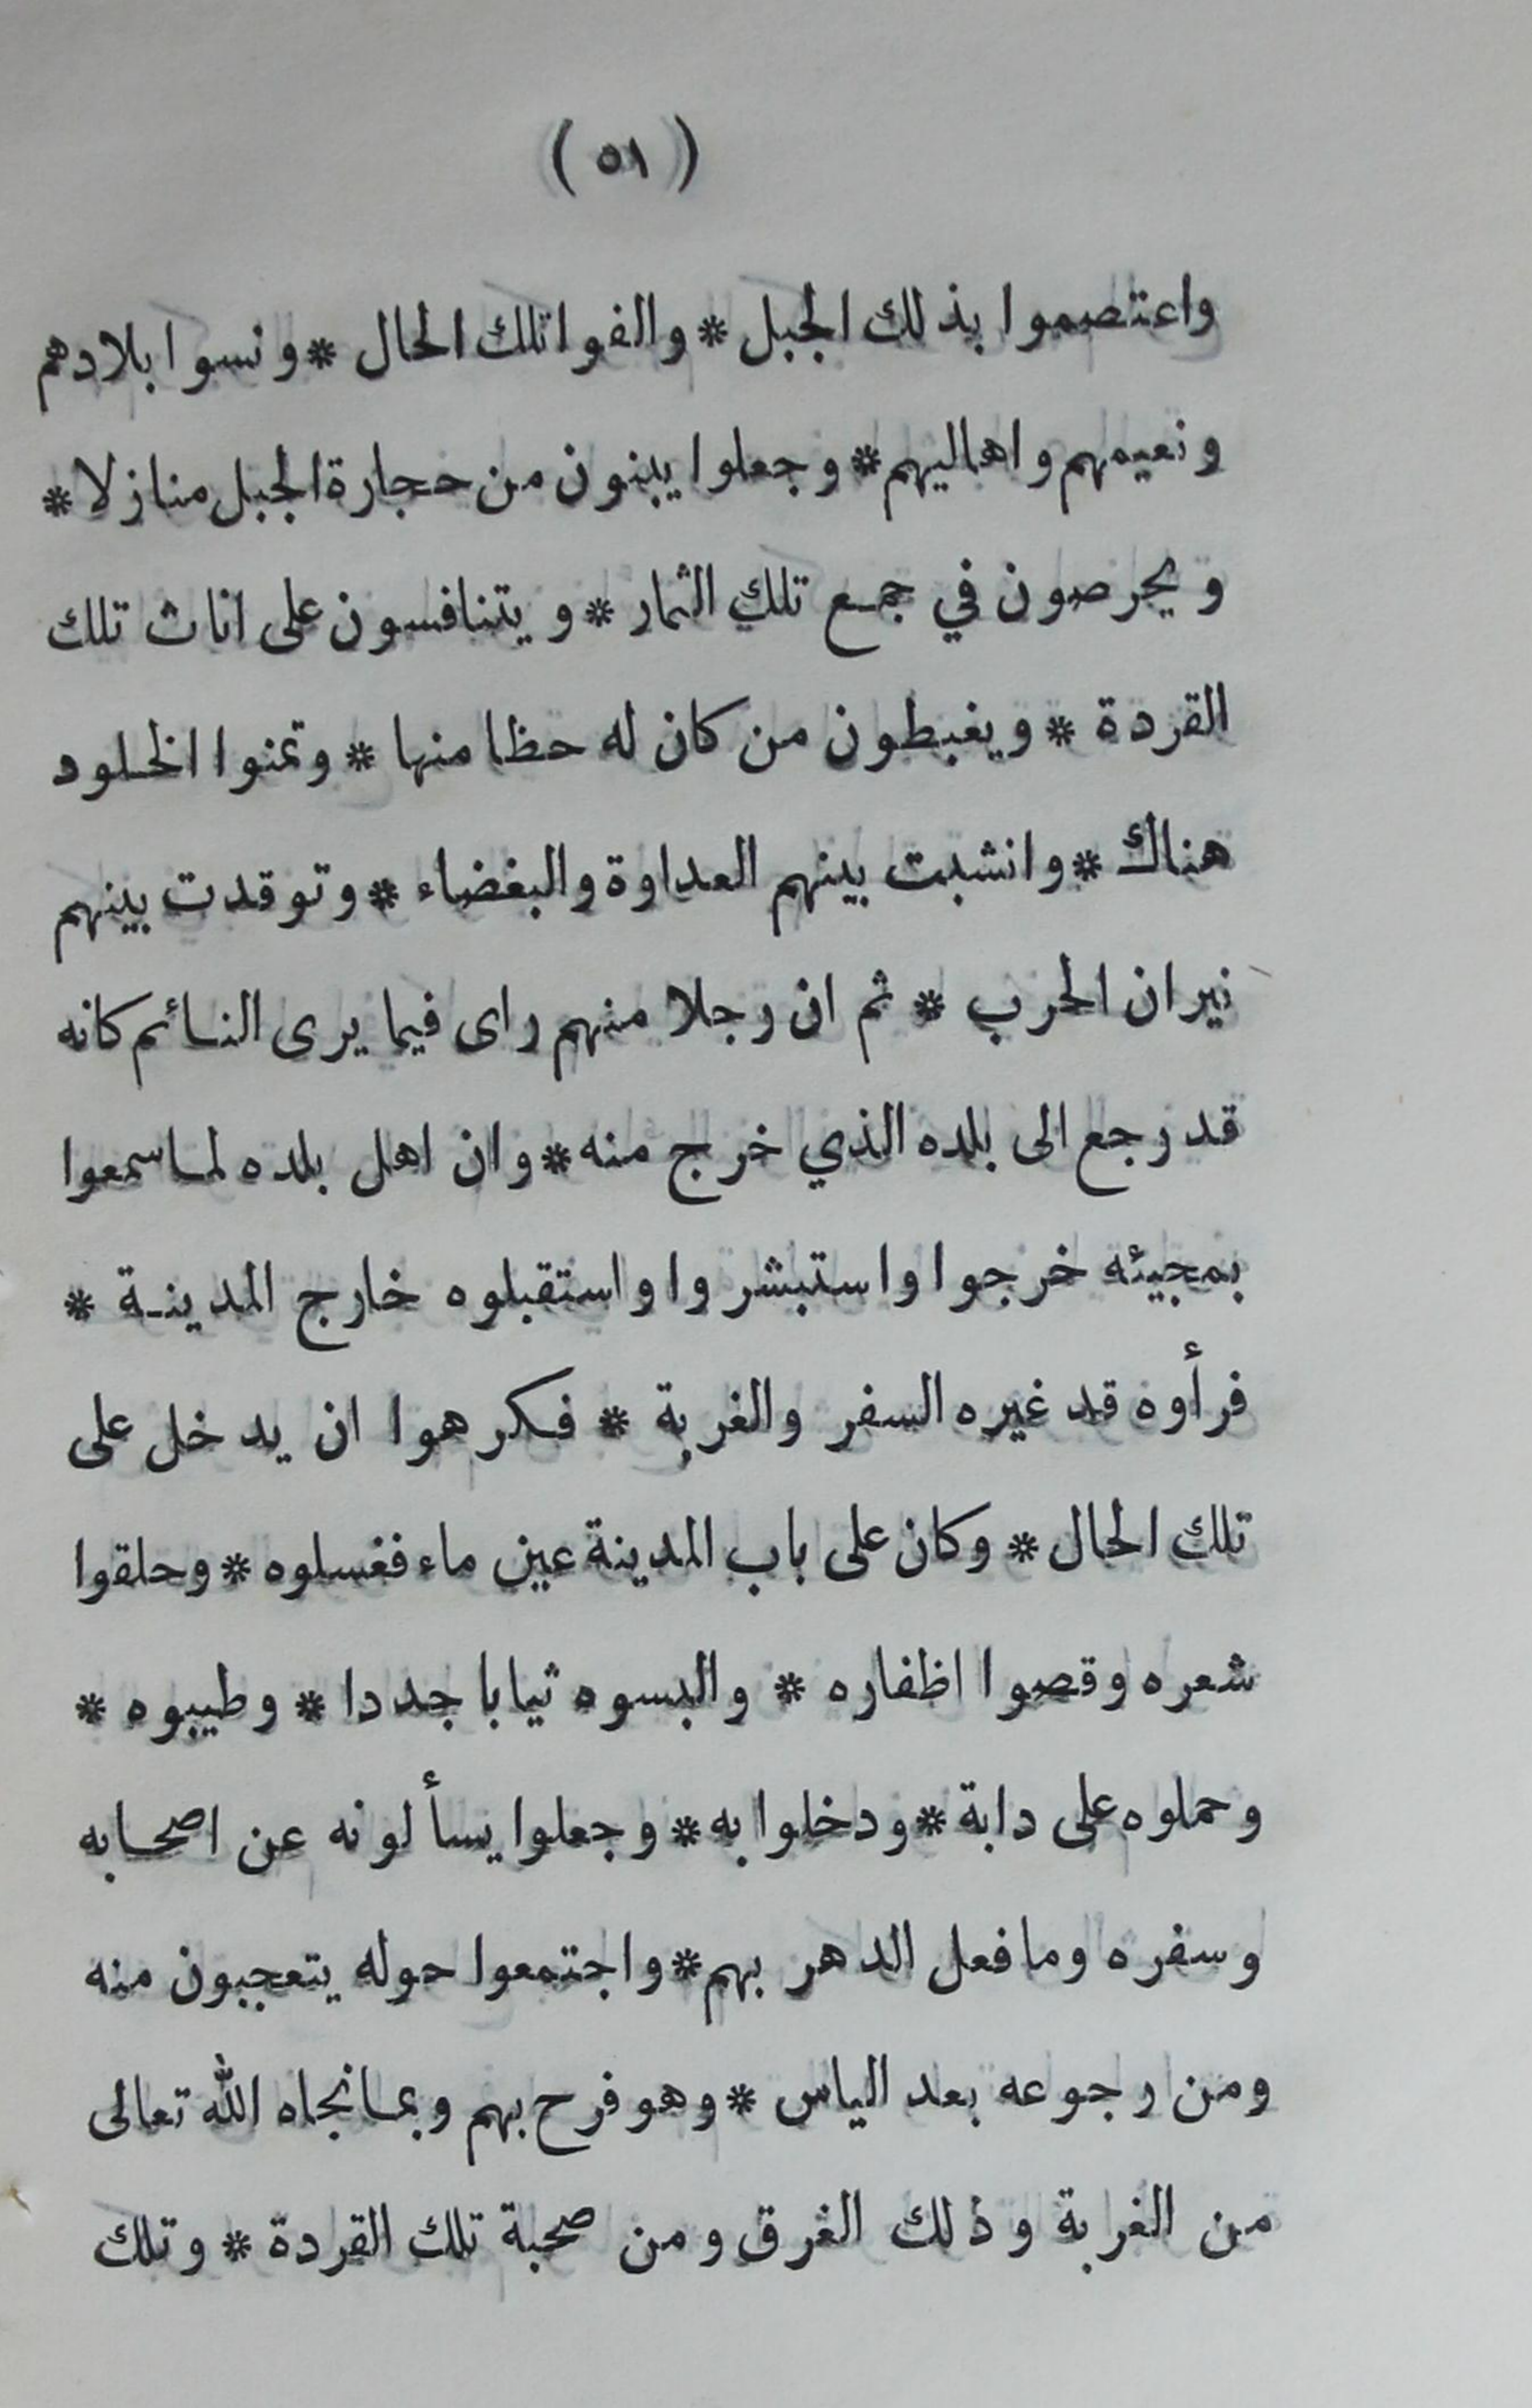 (٥١)
واعتصموا بذلك الجبل * والفوا تلك الحال * ونسوا بلادهم
ونعيمهم واهاليهم * وجعلوا يبنون من حجارة الجبل منازلا *
ويحرصون في جمع تلك الثمار * ويتنافسون على اناث تلك
القردة * ويغبطون من كان له حظا منها * وتمنوا الخلود
هناك * وانشبت بينهم العداوة والبغضاء * وتوقدت بينهم
نيران الحرب * ثم ان رجلا منهم راى فيما يرى النائم كانه
قد رجع الى بلده الذي خرج منه * وان اهل بلده لما سمعوا
بمجيئه خرجوا واستبشروا واستقبلوه خارج المدينة *
فرأوه قد غيره السفر والغربة * فكرهوا ان يدخل على
تلك الحال * وكان على باب المدينة عين ماء فغسلوه * وحلقوا
شعره وقصوا اظفاره * والبسوه ثيابا جددا * وطيبوه *
وحملوه على دابة * ودخلوا به * وجعلوا يسألونه عن اصحابه
وسفره وما فعل الدهر بهم * واجتمعوا حوله يتعجبون منه
ومن رجوعه بعد الياس * وهو فرح بهم وبما نجاه الله تعالى
من الغربة وذلك الغرق ومن صحبة تلك القردة * وتلك